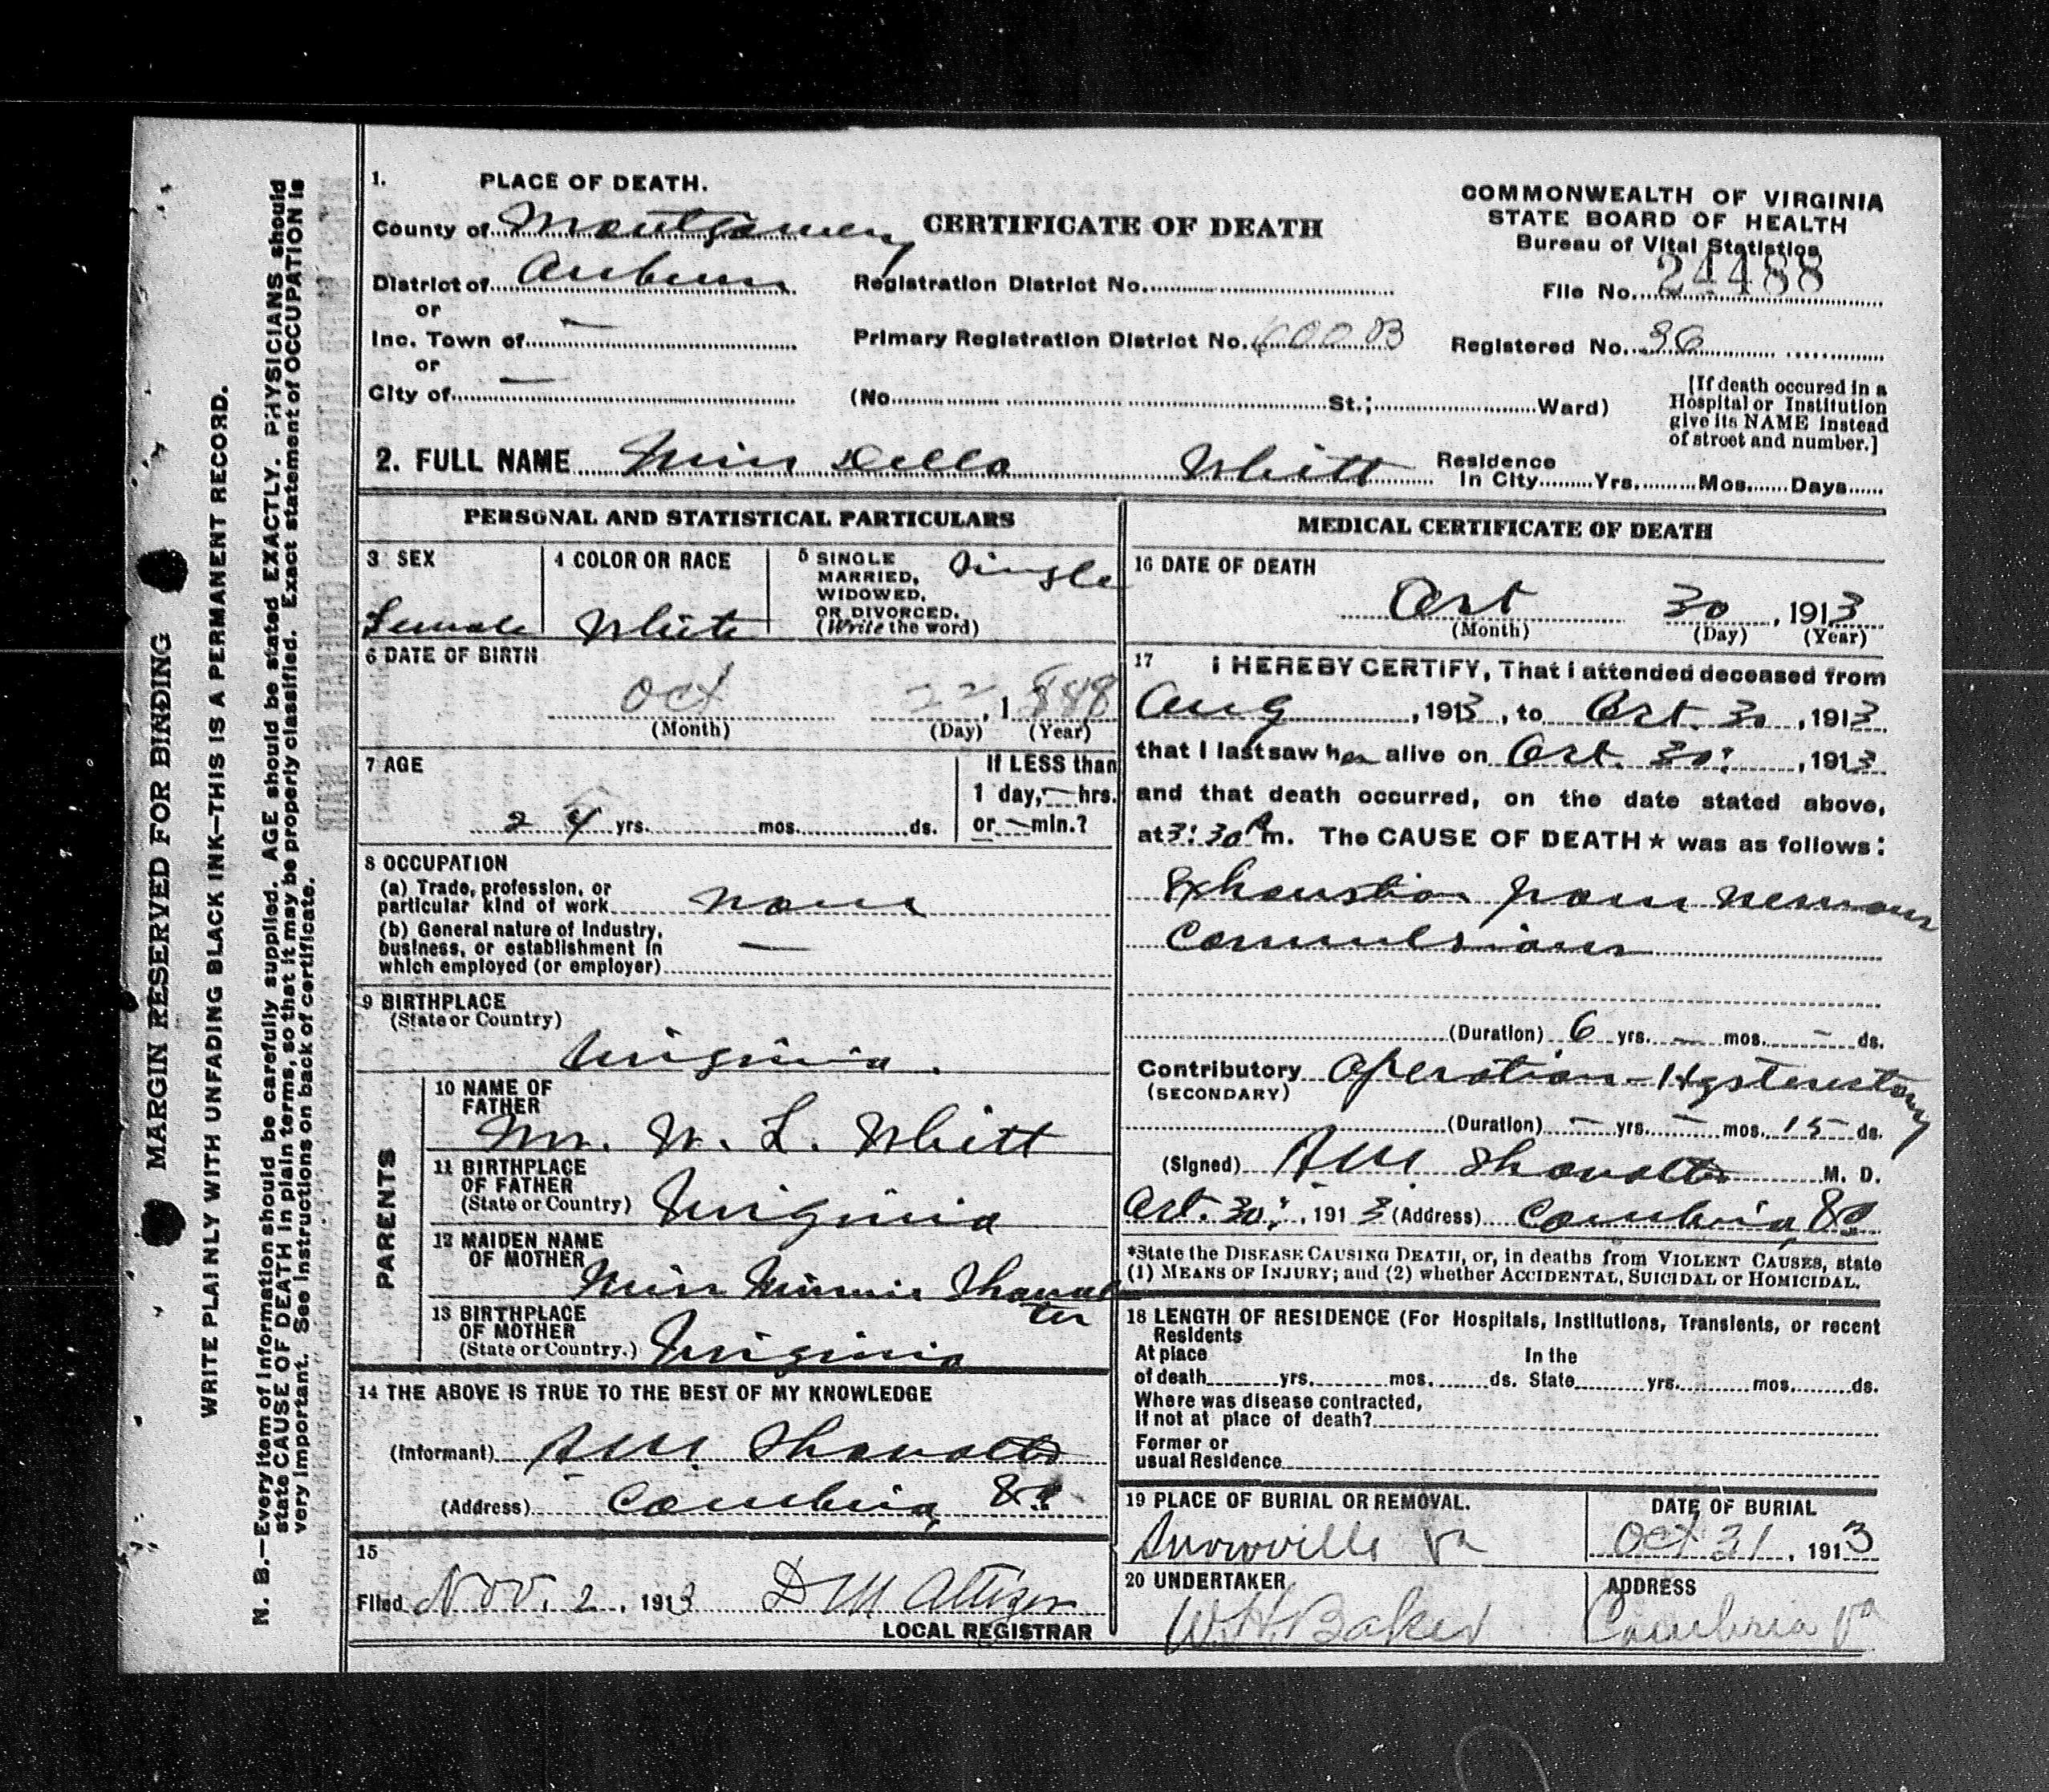 1. PLACE OF DEATH.
County of Montgomery
District of Auburn
or
Inc. Town of —
or
City of —
CERTIFICATE OF DEATH
Registration District No.
Primary Registration District No. 600 B
(No. St.; Ward)
COMMONWEALTH OF VIRGINIA
STATE BOARD OF HEALTH
Bureau of Vital Statistics
File No. 24488
Registered No. 36
[If death occured in a
Hospital or Institution
give its NAME instead
of street and number.]
2. FULL NAME Miss Della Whitt
Residence
In City Yrs. Mos. Days
PERSONAL AND STATISTICAL PARTICULARS
3 SEX
Female
4 COLOR OR RACE
White
5 SINGLE
MARRIED,
WIDOWED,
OR DIVORCED.
(Write the word)
Single
6 DATE OF BIRTH
Oct 22, 1888
(Month) (Day) (Year)
7 AGE
24 yrs. mos. ds.
If LESS than
1 day, — hrs.
or — min.?
8 OCCUPATION
(a) Trade, profession, or
particular kind of work none
(b) General nature of Industry,
business, or establishment in
which employed (or employer) —
9 BIRTHPLACE
(State or Country)
Virginia.
PARENTS
10 NAME OF
FATHER
Mr. W. L. Whitt
11 BIRTHPLACE
OF FATHER
(State or Country) Virginia
12 MAIDEN NAME
OF MOTHER
Miss Minnie Showalter
13 BIRTHPLACE
OF MOTHER
(State or Country.) Virginia
14 THE ABOVE IS TRUE TO THE BEST OF MY KNOWLEDGE
(Informant) A M Showalter
(Address) Cambria, Va.
15
Filed Nov. 2, 1913 D M Altizer
LOCAL REGISTRAR
MEDICAL CERTIFICATE OF DEATH
16 DATE OF DEATH
Oct 30, 1913
(Month) (Day) (Year)
17 I HEREBY CERTIFY, That I attended deceased from
Aug, 1913, to Oct. 30, 1913
that I last saw her alive on Oct. 30, 1913
and that death occurred, on the date stated above,
at 3:30 A m. The CAUSE OF DEATH★ was as follows:
Exhaustion from nervous
Convulsions
(Duration) 6 yrs. — mos. — ds.
Contributory Operation - Hysterectomy
(SECONDARY)
(Duration) — yrs. — mos. 15 ds.
(Signed) A M Showalter M. D.
Oct. 30, 1913 (Address) Cambria, Va
*State the DISEASE CAUSING DEATH, or, in deaths from VIOLENT CAUSES, state
(1) MEANS OF INJURY; and (2) whether ACCIDENTAL, SUICIDAL or HOMICIDAL.
18 LENGTH OF RESIDENCE (For Hospitals, Institutions, Transients, or recent
Residents
At place
of death yrs. mos. ds.
In the
State yrs. mos. ds.
Where was disease contracted,
If not at place of death?
Former or
usual Residence
19 PLACE OF BURIAL OR REMOVAL.
Snowville Va
DATE OF BURIAL
Oct 31, 1913
20 UNDERTAKER
W. H. Baker
ADDRESS
Cambria Va
MARGIN RESERVED FOR BINDING
WRITE PLAINLY WITH UNFADING BLACK INK—THIS IS A PERMANENT RECORD.
N. B.—Every item of information should be carefully supplied. AGE should be stated EXACTLY. PHYSICIANS should
state CAUSE OF DEATH in plain terms, so that it may be properly classified. Exact statement of OCCUPATION is
very important. See instructions on back of certificate.